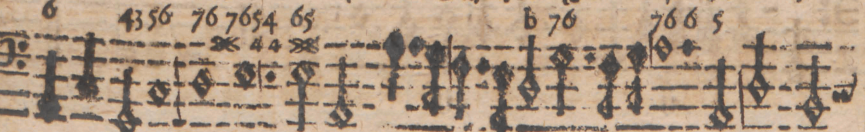 6 43 56 76 7654 65 b 76 76 6 5
44